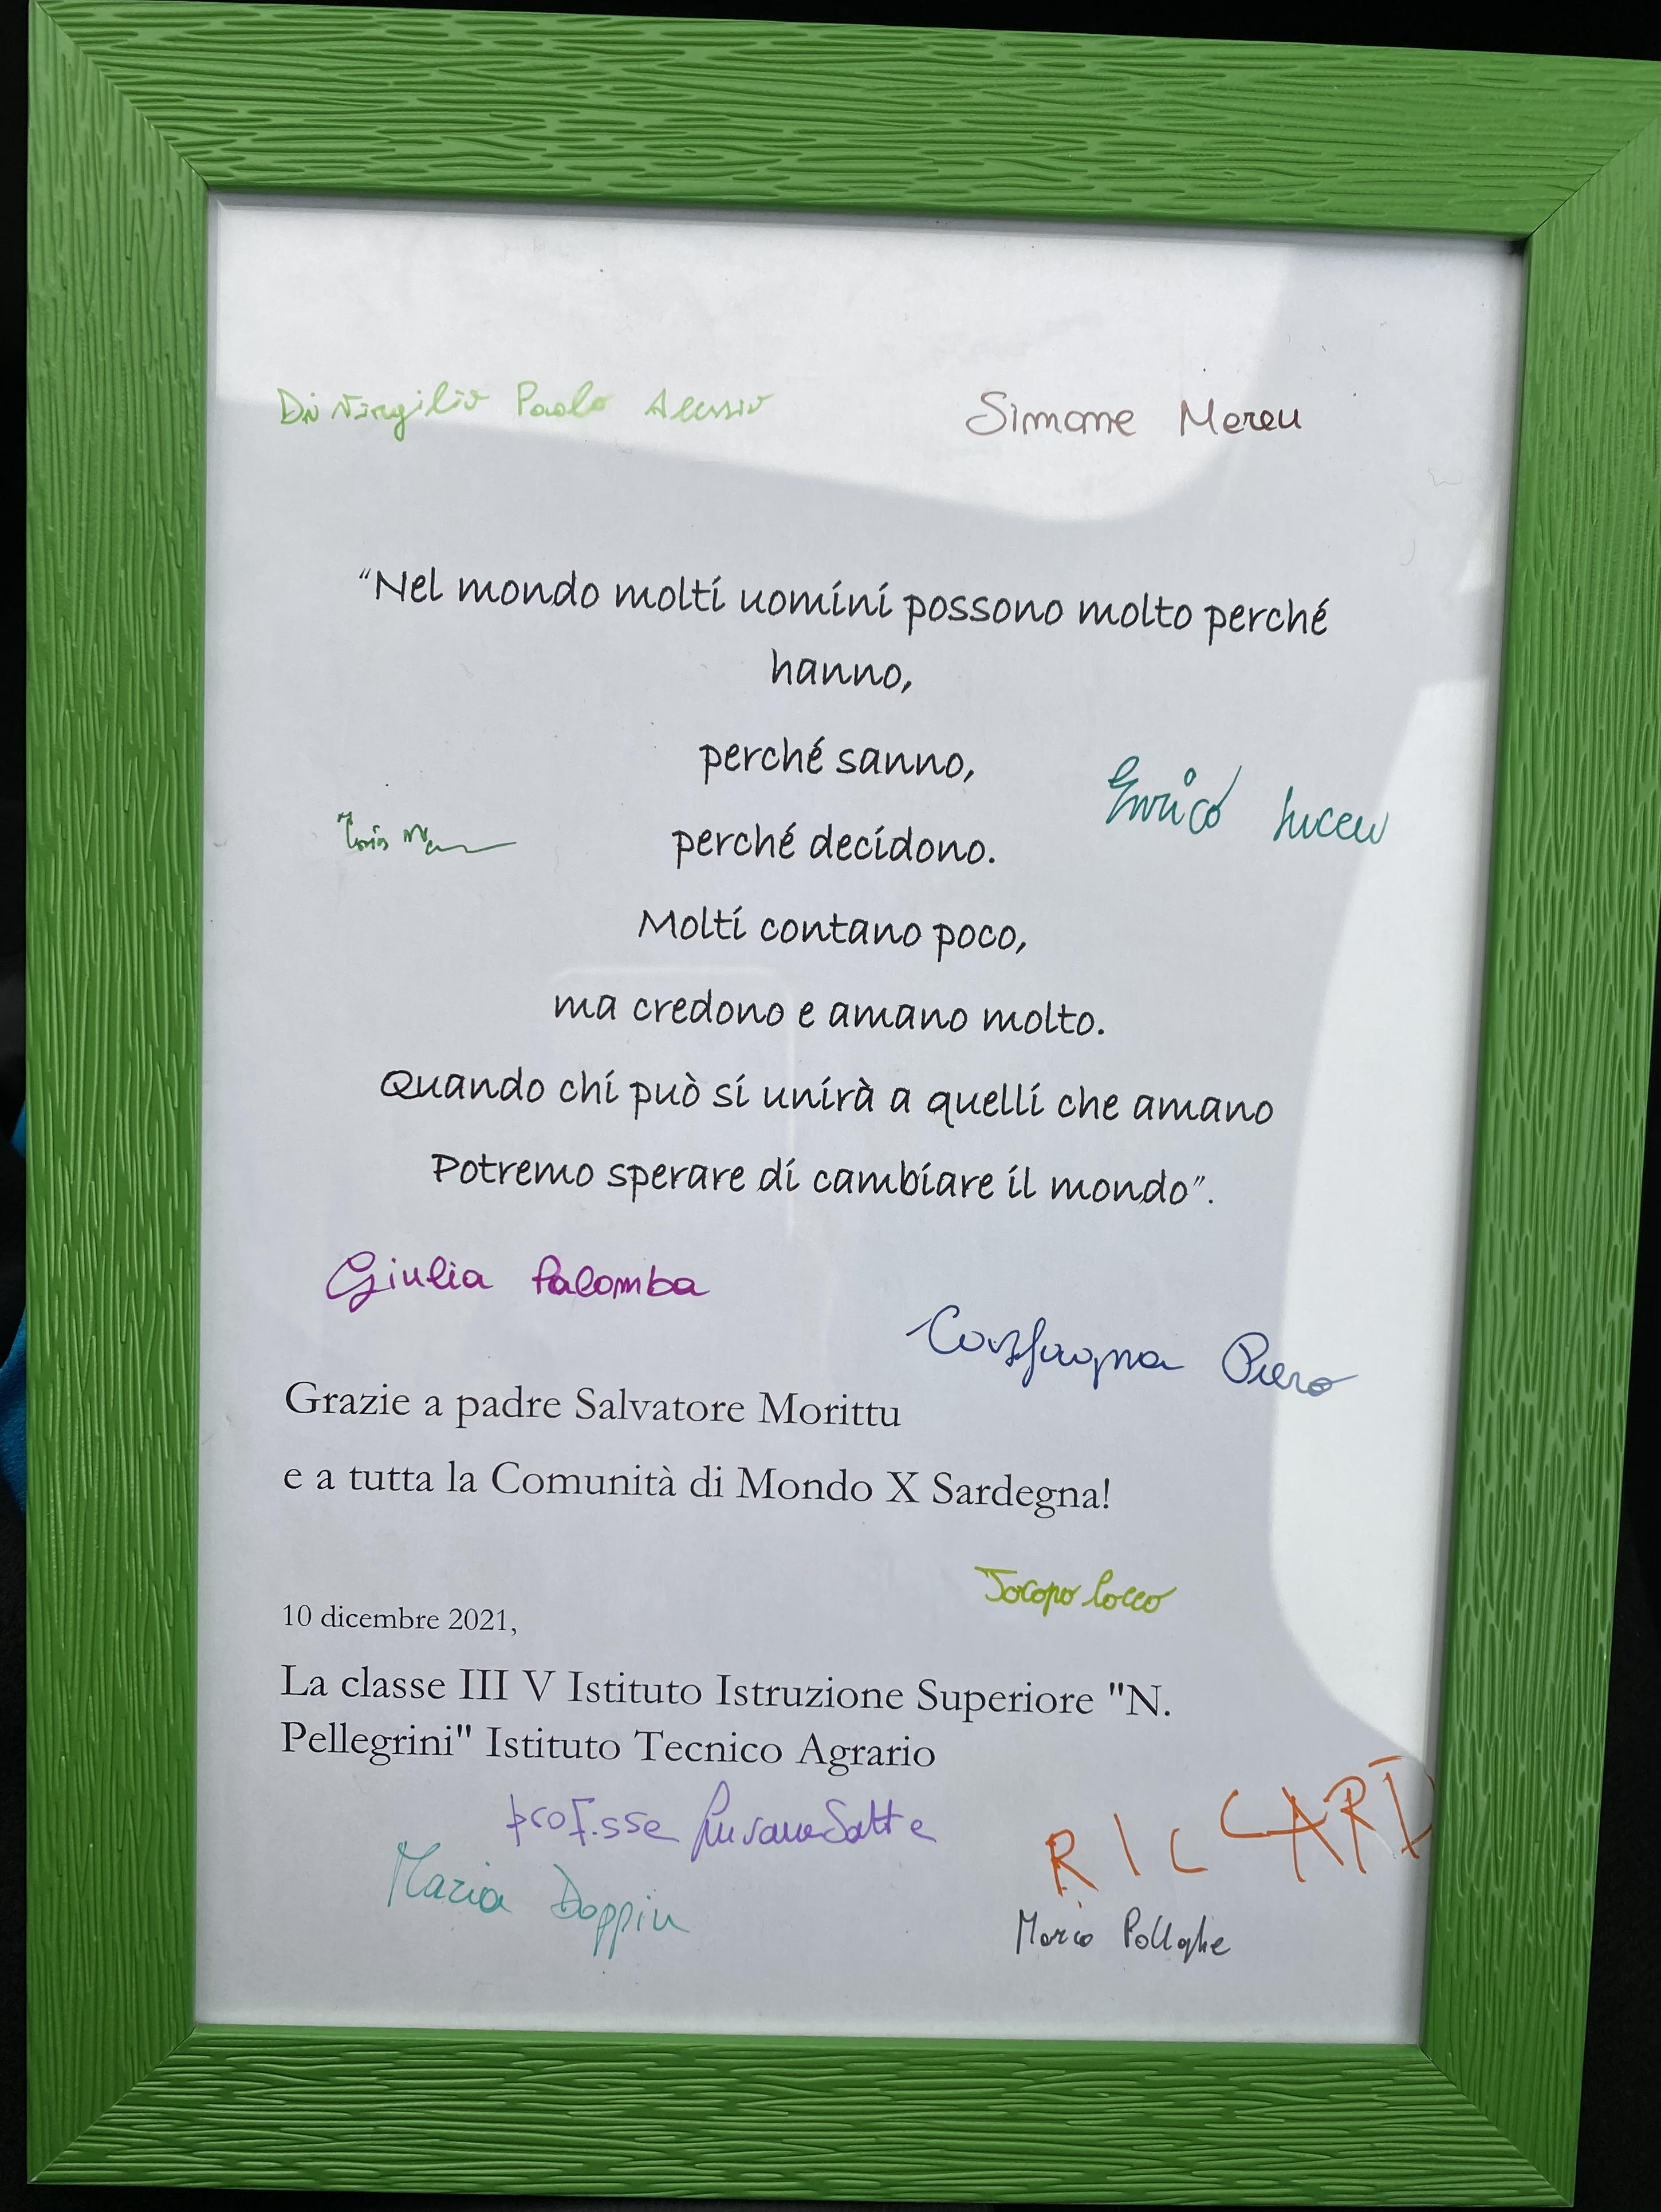 Di Virgilio Paolo Alessio
Simone Mereu
“Nel mondo molti uomini possono molto perché
hanno,
perché sanno,
Enrico
perché decidono.
Molti contano poco,
ma credono e amano molto.
Quando chi può si unirà a quelli che amano
Potremo sperare di cambiare il mondo”.
Giulia Palomba
Piero
Grazie a padre Salvatore Morittu
e a tutta la Comunità di Mondo X Sardegna!
Jacopo Cocco
10 dicembre 2021,
La classe III V Istituto Istruzione Superiore "N.
Pellegrini" Istituto Tecnico Agrario
prof.sse
RICCARD
Maria Doppiu
Marco